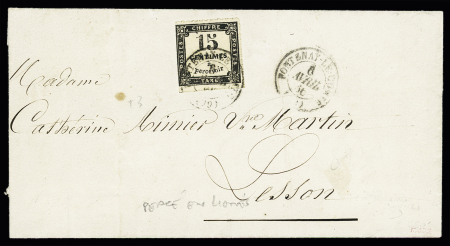 CHIFFRE
15
CENTIMES
à
percevoir
POSTES
POSTES
TAXE
FONTENAY-LE-COMTE
6
AVRIL
Madame
Catherine Mimier Vve Martin
Lesson
PERCÉ EN LIGNES